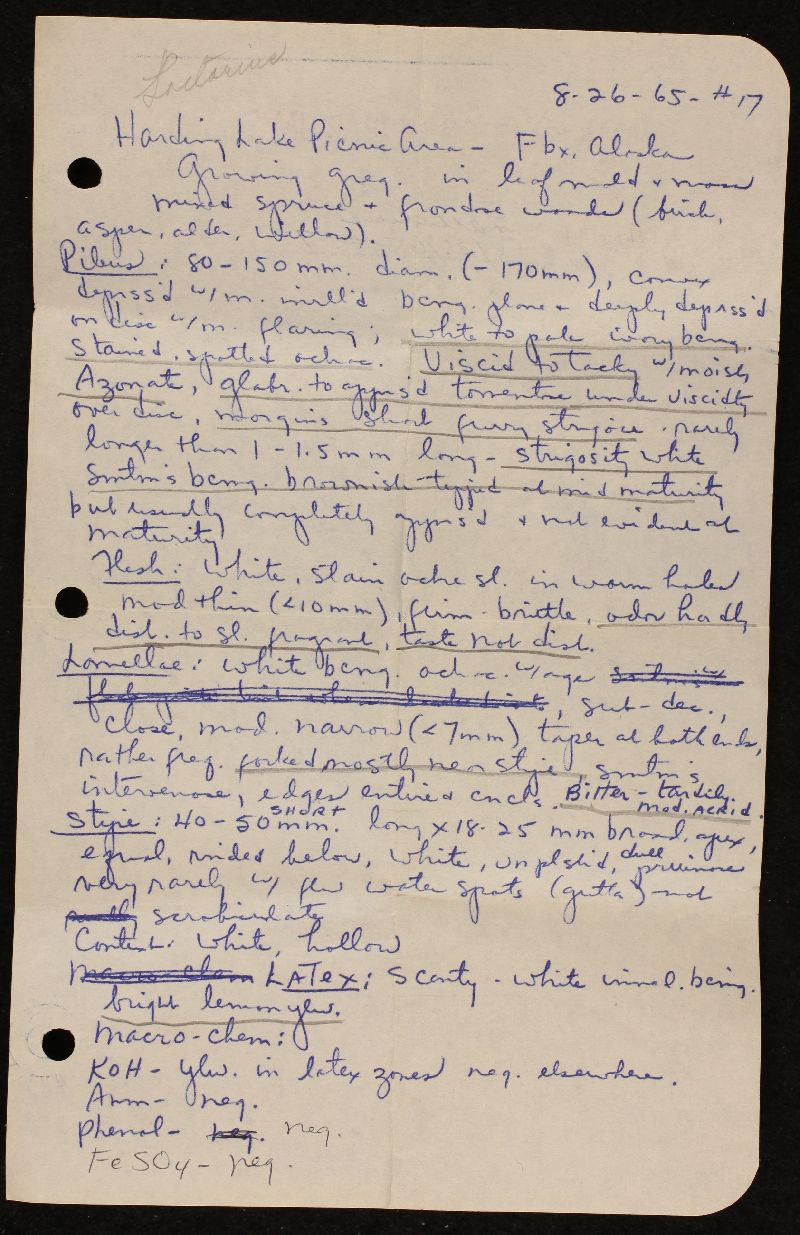 Lactarius
8-26-65-#17
Harding Lake Picnic Area - Fbx, Alaska
Growing greg. in leaf mold & moss
mixed spruce + frondose woods (birch,
aspen, alder, willow).
Pileus: 80-150mm. diam. (-170mm), convex
depress'd w/m. inrll'd bcmg. plane & deeply depress'd
on disc w/m. flaring; white to pale ivory bcmg.
stained, spotted ochrac. Viscid to Tacky w/moist,
Azonate, glabr. to appress'd tomentose under viscidity
over disc, margins short furry strigose - rarely
longer than 1-1.5mm long - strigosity white
smtm's bcmg. brownish tipped at mid maturity
but usually completely appress'd & not evident at
maturity
Flesh: white, stain ochre sl. in worm holes
mod thin (<10mm), firm-brittle, odor hardly
dist. to sl. fragrant, taste not dist.
Lamellae: white bcmg. ochrac. w/age
, sub-dec.,
close, mod. narrow (<7mm) taper at both ends,
rather freq. forked mostly near stipe, smtm's
intervenose, edges entire & cncls. Bitter - tardily
mod. acrid.
Stipe: 40-50mm. SHORT long x 18-25 mm broad, apex,
equal, below, white, unplshd, dull pruinose
very rarely w/ few water spots (gutta) - not
scrobiculate
Context: white, hollow
Macro-chem LATEX: Scanty - white immed. bcmg.
bright lemon ylw.
Macro-chem:
KOH - ylw. in latex zones neg. elsewhere.
Amm- neg.
phenol- neg. neg.
FeSO4- neg.